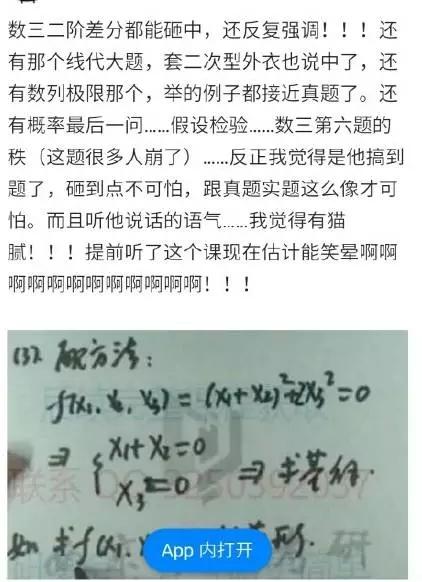 数三二阶差分都能砸中，还反复强调！！！还
有那个线代大题，套二次型外衣也说中了，还
有数列极限那个，举的例子都接近真题了。还
有概率最后一问......假设检验......数三第六题的
秩（这题很多人崩了）......反正我觉得是他搞到
题了，砸到点不可怕，跟真题实题这么像才可
怕。而且听他说话的语气......我觉得有猫
腻！！！提前听了这个课现在估计能笑晕啊啊
啊啊啊啊啊啊啊啊啊啊！！！
(3) 配方法：
f(x₁, x₂, x₃) = (x₁+x₂)²+2x₃²=0
⇒ { x₁+x₂=0
x₃=0 ⇒ 求基础
联系
如 求f(x₁,
App 内打开
研